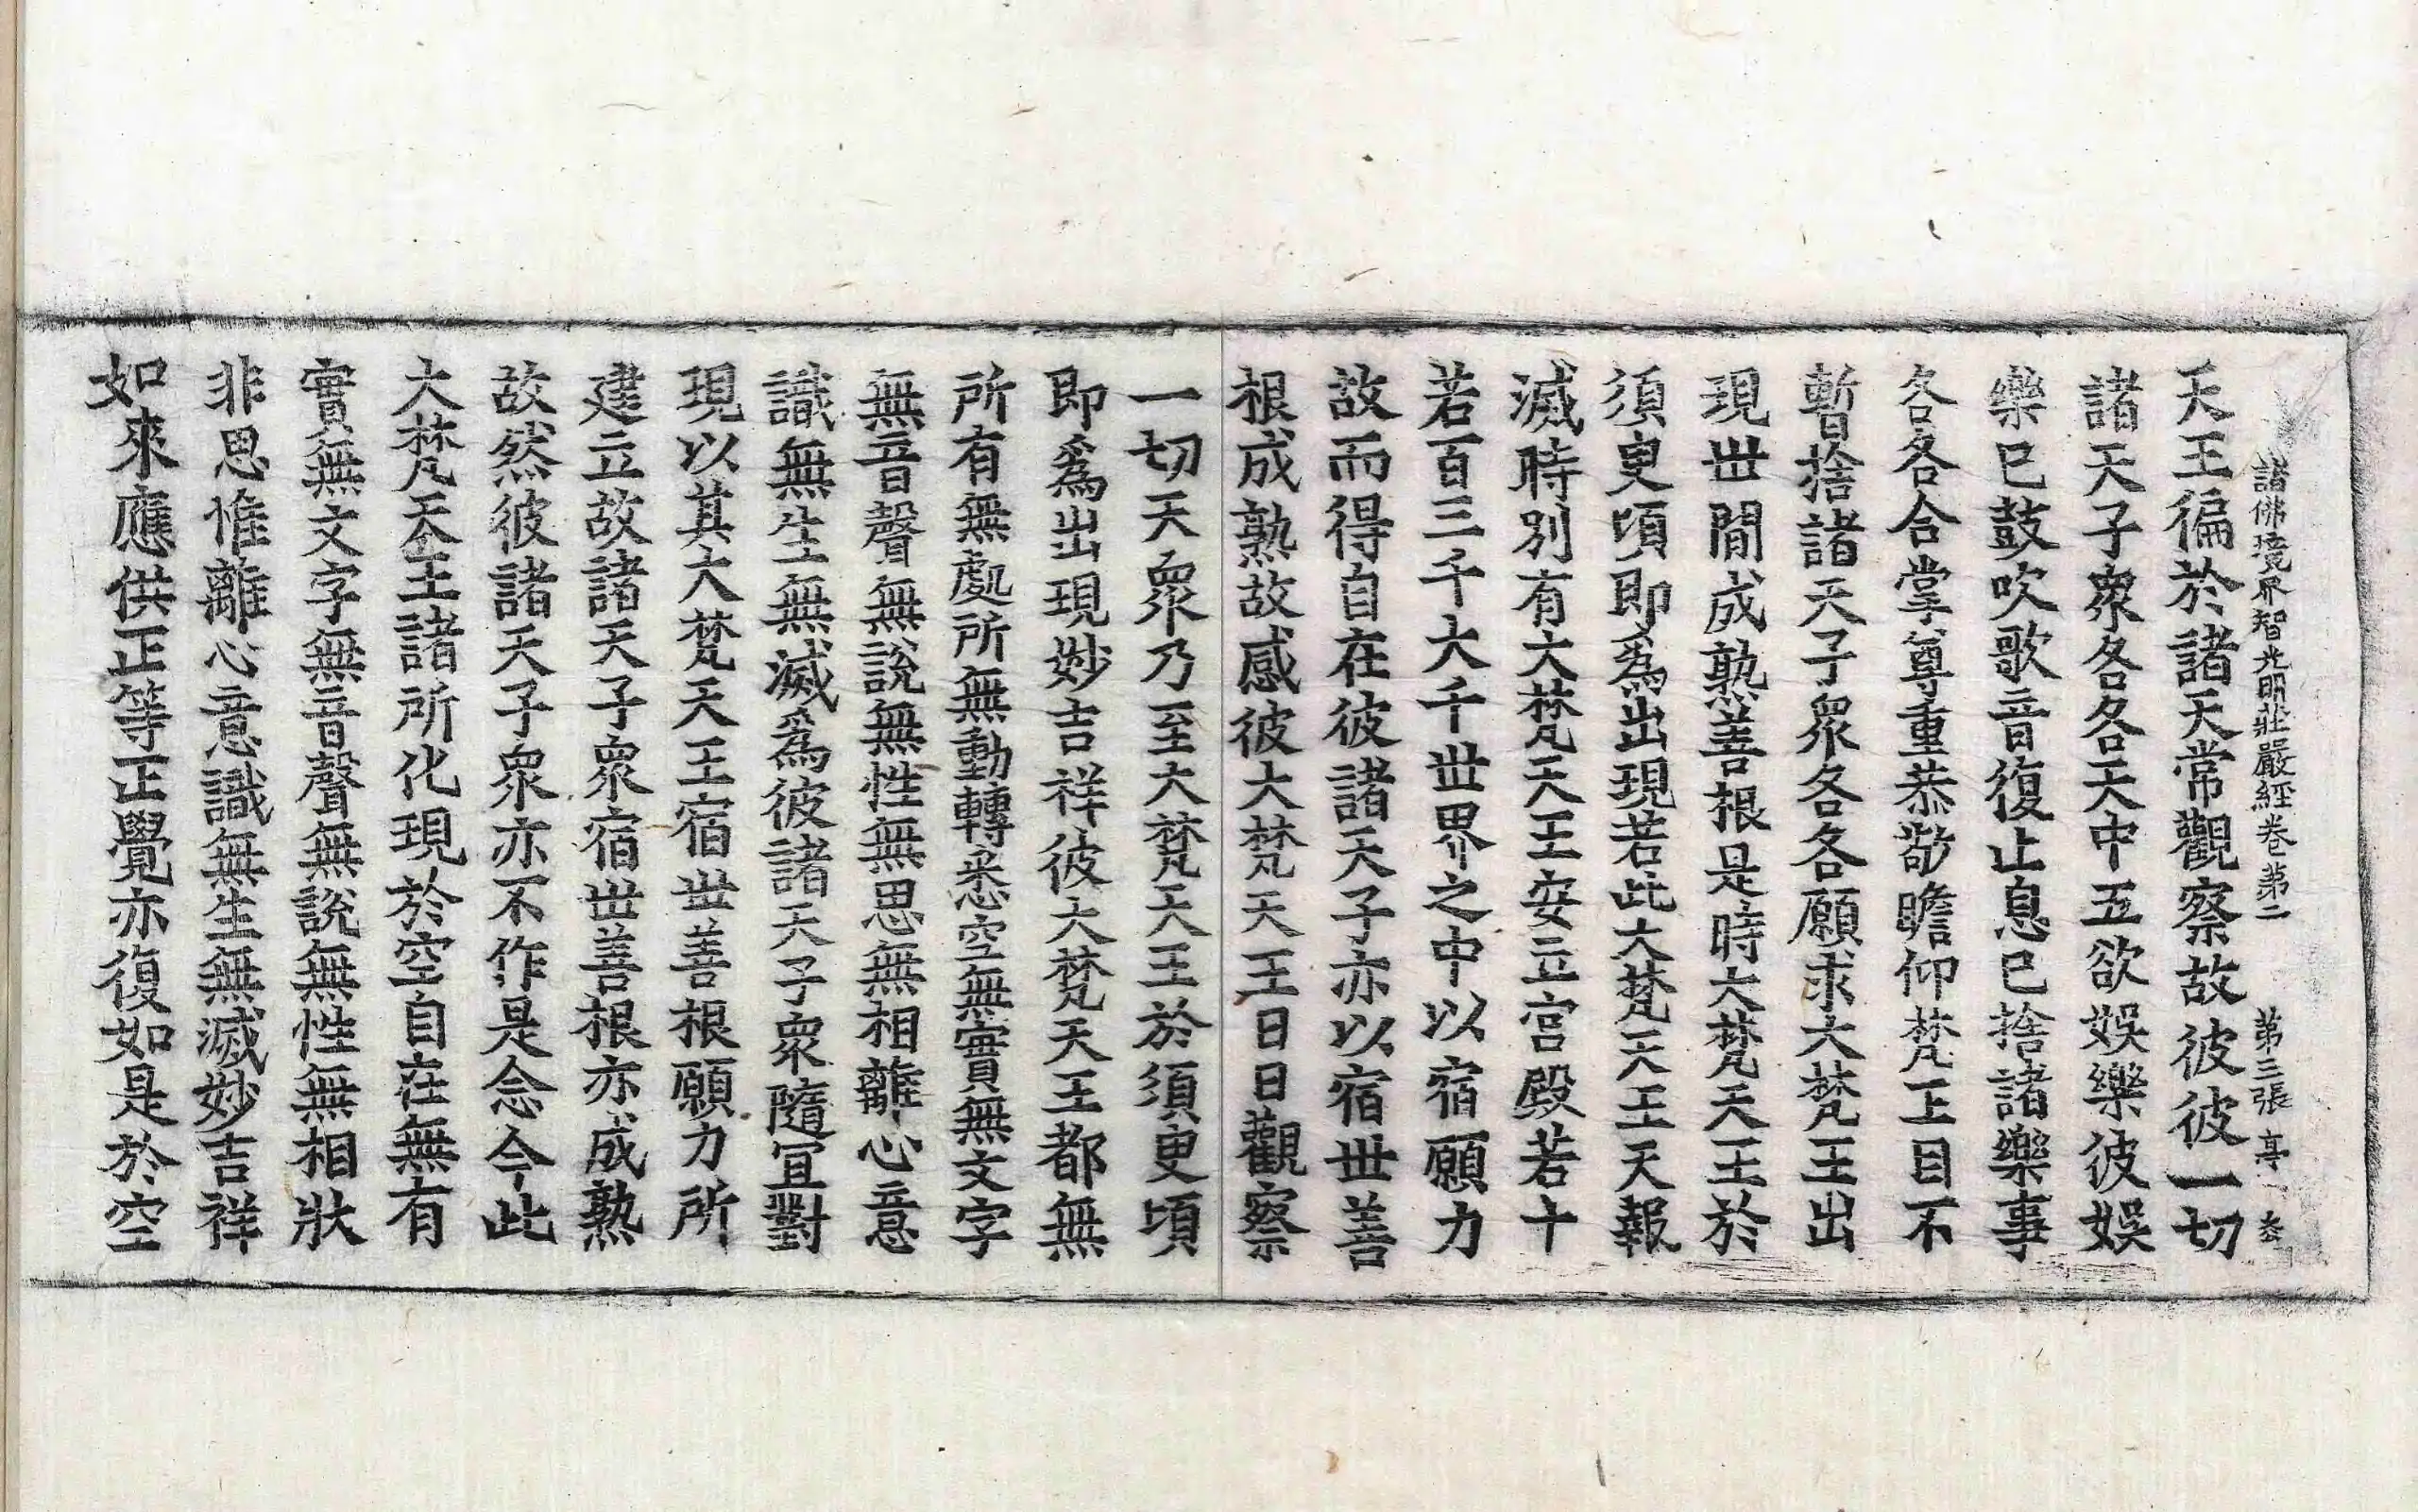 諸佛境界智光明莊嚴經卷第二 第三張 亭
天王徧於諸天常觀察故彼彼一切
諸天子衆各各天中五欲娛樂彼娛
樂已鼓吹歌音復止息已捨諸樂事
各各合掌尊重恭敬瞻仰梵王目不
暫捨諸天子衆各各願求大梵王出
現世間成熟善根是時大梵天王於
須臾頃即爲出現若此大梵天王天報
滅時別有大梵天王安立宫殿若十
若百三千大千世界之中以宿願力
故而得自在彼諸天子亦以宿世善
根成熟故感彼大梵天王日日觀察
一切天衆乃至大梵天王於須臾頃
即爲出現妙吉祥彼大梵天王都無
所有無處所無動轉悉空無實無文字
無音聲無說無性無思無相離心意
識無生無滅爲彼諸天子衆隨宜對
現以其大梵天王宿世善根願力所
建立故諸天子衆宿世善根亦成熟
故然彼諸天子衆亦不作是念今此
大梵天王諸所化現於空自在無有
實無文字無音聲無說無性無相狀
非思惟離心意識無生無滅妙吉祥
如來應供正等正覺亦復如是於空